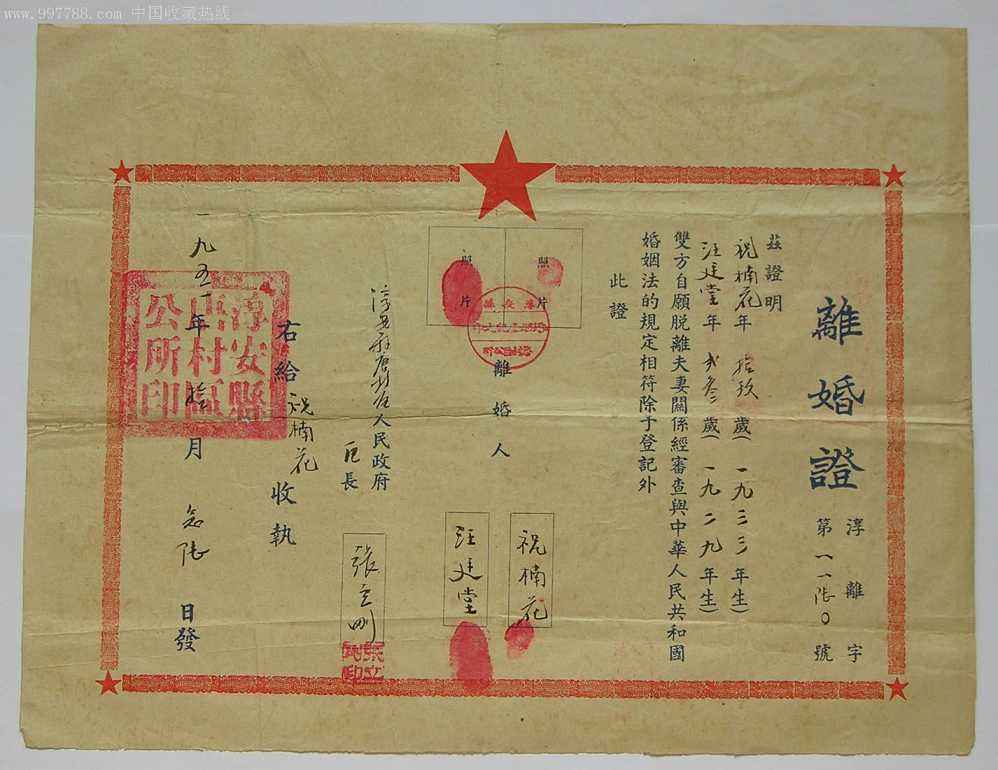 www.997788.com 中国收藏热线
離婚證
淳離字
第一一陸〇號
茲證明
祝楠花年拾玖歲(一九三三年生)
汪廷堂年弍叁歲(一九二九年生)
雙方自願脱離夫妻關係經審查與中華人民共和國
婚姻法的規定相符除予登記外
此證
照片
照片
離婚人
祝楠花
汪廷堂
人民政府
區長
張立刚
右給祝楠花收執
一九五一年拾月念陸日發
淳安縣
村區
公所印